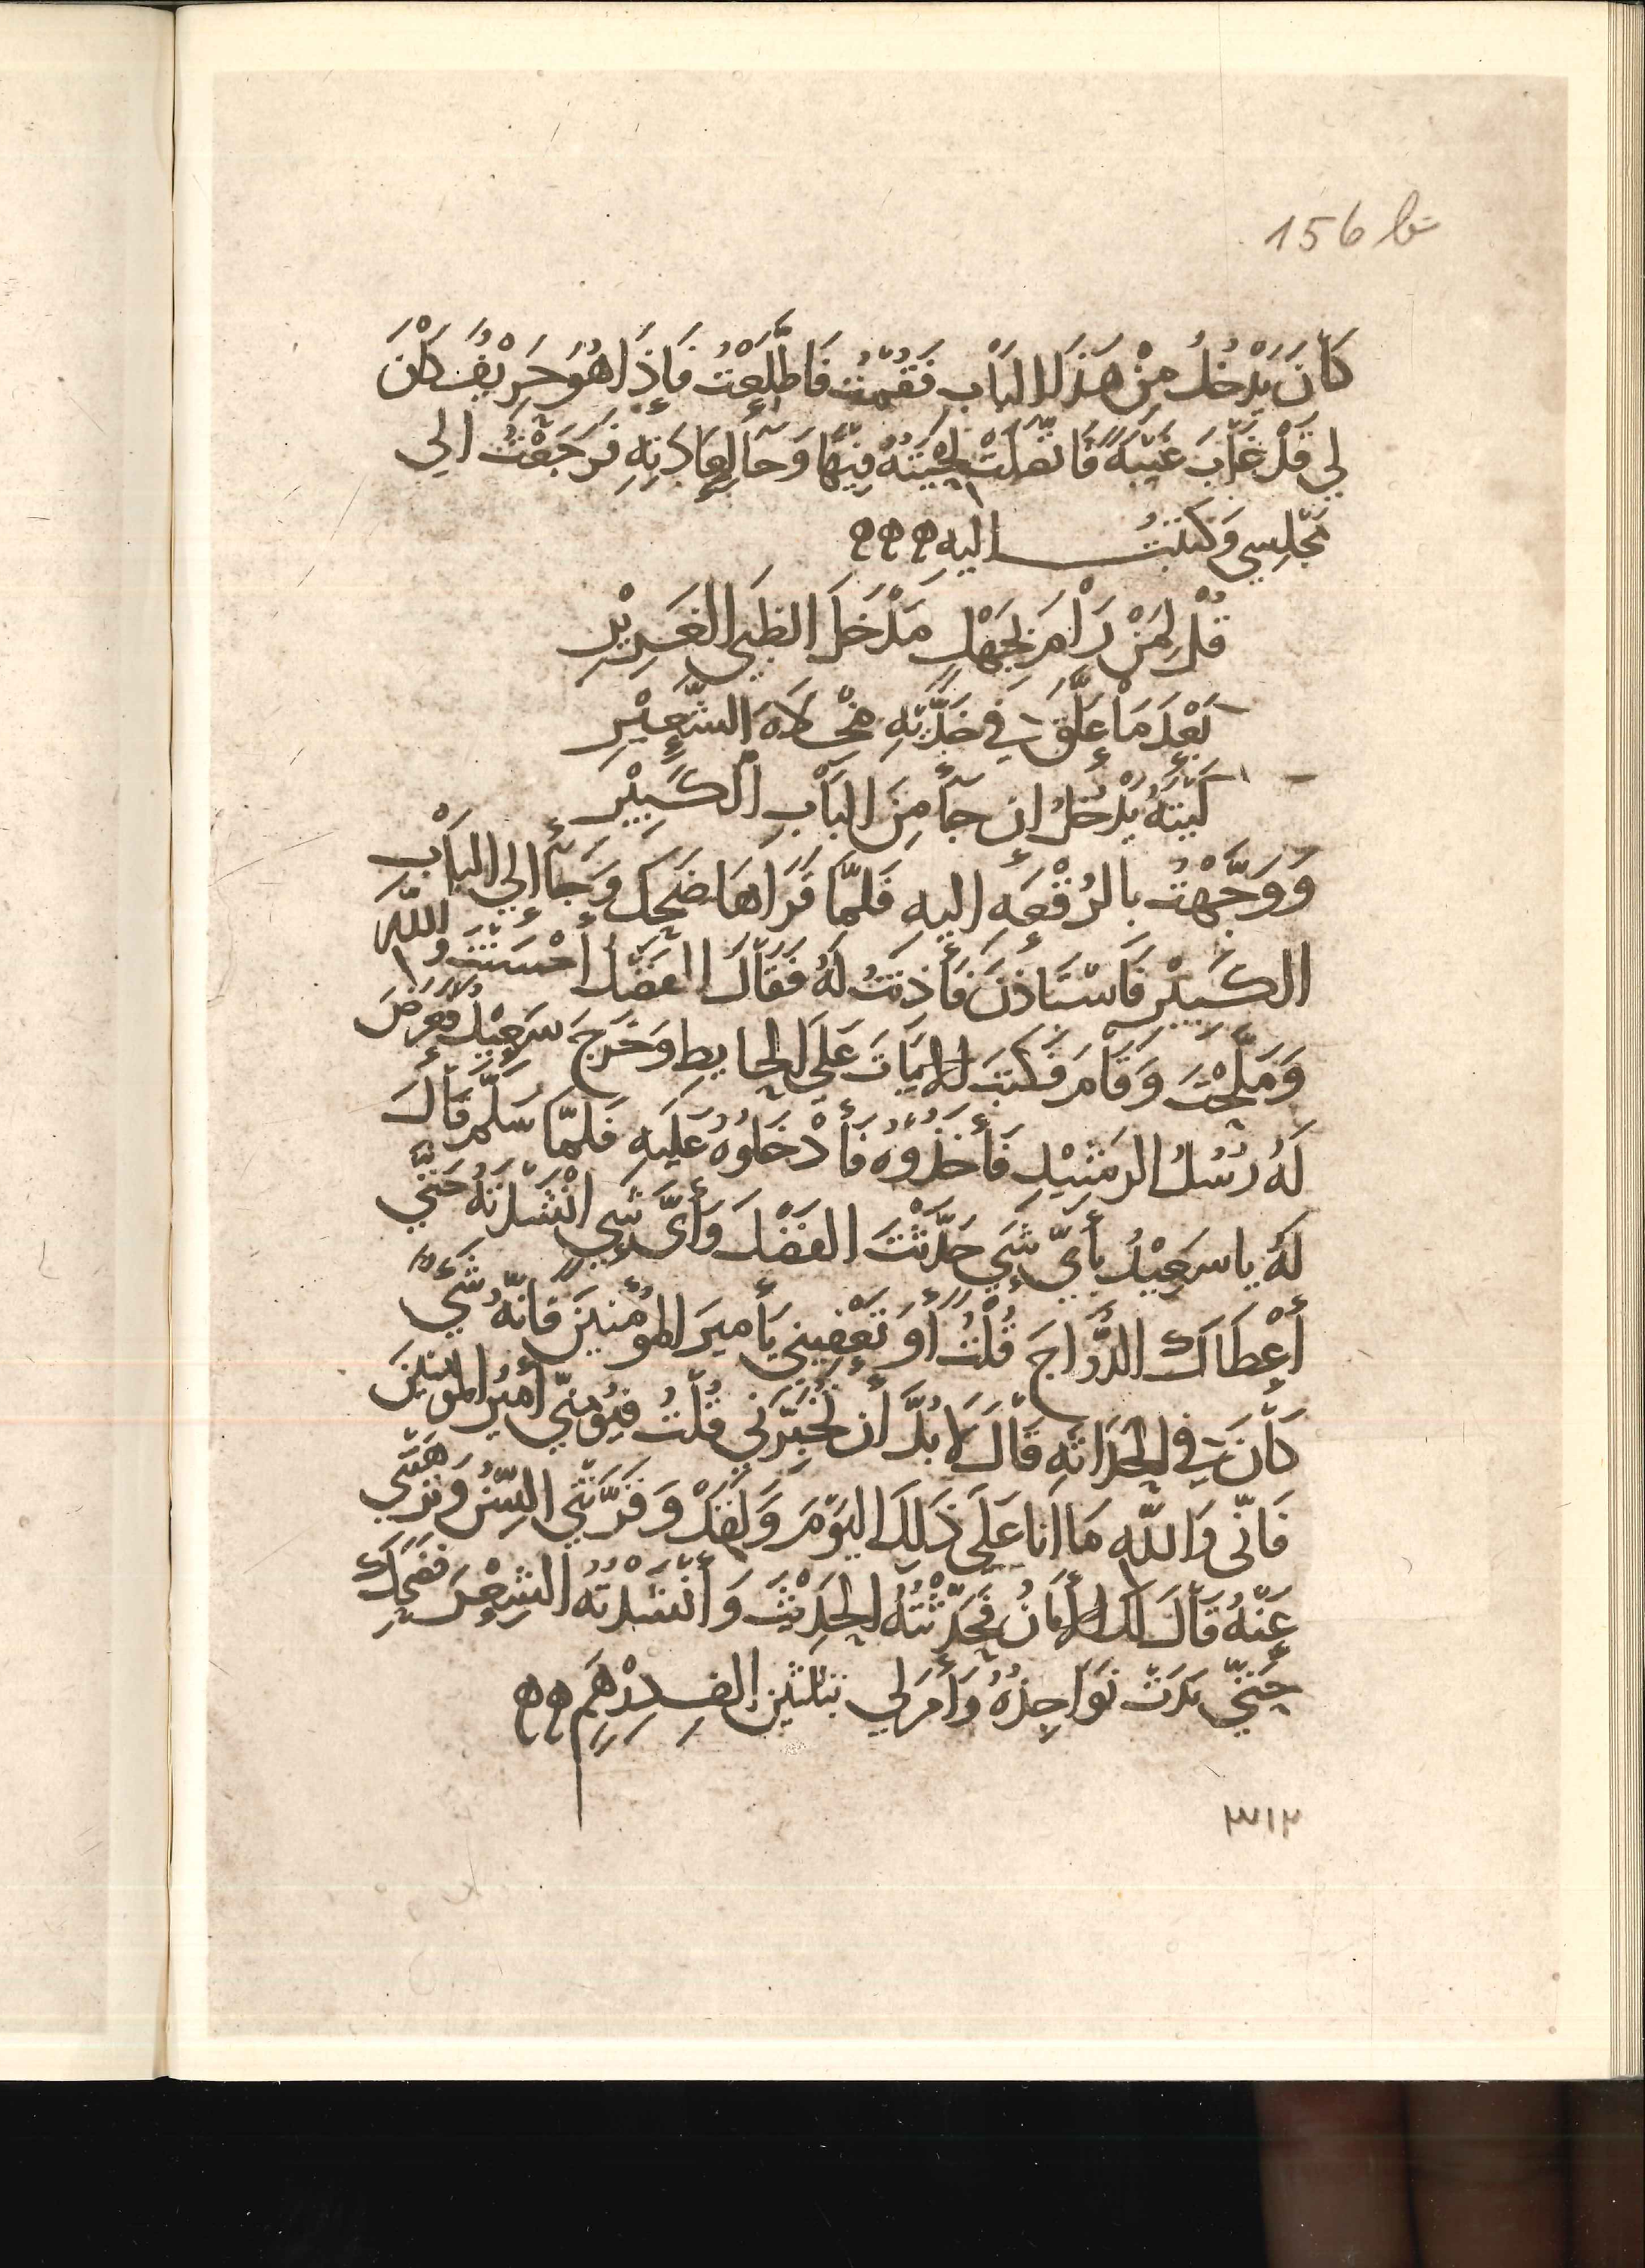 156 b
كَانَ يَدْخُلُ مِنْ هَذَا الْبَابِ فَقُمْتُ فَاطَّلَعْتُ فَإِذَا هُوَ حَرِيْفٌ كَانَ
لِي قَدْ غَابَ غَيْبَةً فَاتَّصَلَتْ لِحْيَتُهُ فِيْهَا وَجَآ لِعَادَتِهِ فَرَجَعْتُ الي
مَجْلِسِي وَكَتَبْتُ اليه
قُلْ لِمَنْ رَامَ بِجَهْلٍ مَدْخَلَ الظَبْيِ الْغَرِيْرِ
بَعْدَ مَا عَلَّقَ فِي خَدَّيْهِ مِخْلَاةَ الشَّعِيْرِ
لَيْتَهُ يَدْخُلُ إِن جَآ مِنَ الْبَابِ الْكَبِيْرِ
وَوَجَّهْتُ بِالرُقْعَةِ إِليهِ فَلَمَّا قَرَاهَا ضَحِكَ وَجَآ إِلي الْبَابِ
الكَبِيْرِ فَاسْتَاذَنَ فَأَذِنْتُ لَهُ فَقَالَ الفَضْلُ أَحْسَنْتَ وَاللّهِ
وَمَلَّحْتَ وَقَامَ فَكَتَبَ الابْيَاتَ عَلَي الْحَايِطِ وَخَرَجَ سَعِيْدٌ فَعَرَضَ
لَهُ رُسُلُ الرَشِيْدِ فَأَخَذُوهُ فَأَدْخَلُوهُ عَلَيهِ فَلَمَّا سَلَّمَ قَالَ
لَهُ يا سَعِيْدُ بِأَيِّ شَيٍ حَدَّثْتَ الفَضْلَ وَأَيَّ شَيٍ انْشَدْتَهُ حَتَّي
أَعْطَاكَ الدُّرَّاجَ قُلْتُ أَوَ تُعْفِيني يَأَمِيرَ المُومُنِيْنَ فَانَّهُ شَيٌ
كَانَ فِي الحَدَاثَةِ قَالَ لَابُدَّ أَن تُخْبِرَنِي قُلْتُ فَيُومِنُنِي أَمِيْرُ المُومِنِيْنَ
فَانِّي وَاللّهِ مَا انا عَلَي ذَلِكَ اليَوْمَ وَلَقَدْ وَقَّرَتْنِي السِّنُ وَنَزَّهَتْنِي
عَنْهُ قَالَ لَكَ الأَمَانُ فَحَدَّثْتُهُ الحَدِيْثَ وَأَنْشَدْتُهُ الشِعْرَ فَضَحِكَ
حَتَّي بَدَتْ نَوَاجِذُهُ وَأَمَرَ لِي بثلثين الفِ دِرْهَمٍ
٣١٢